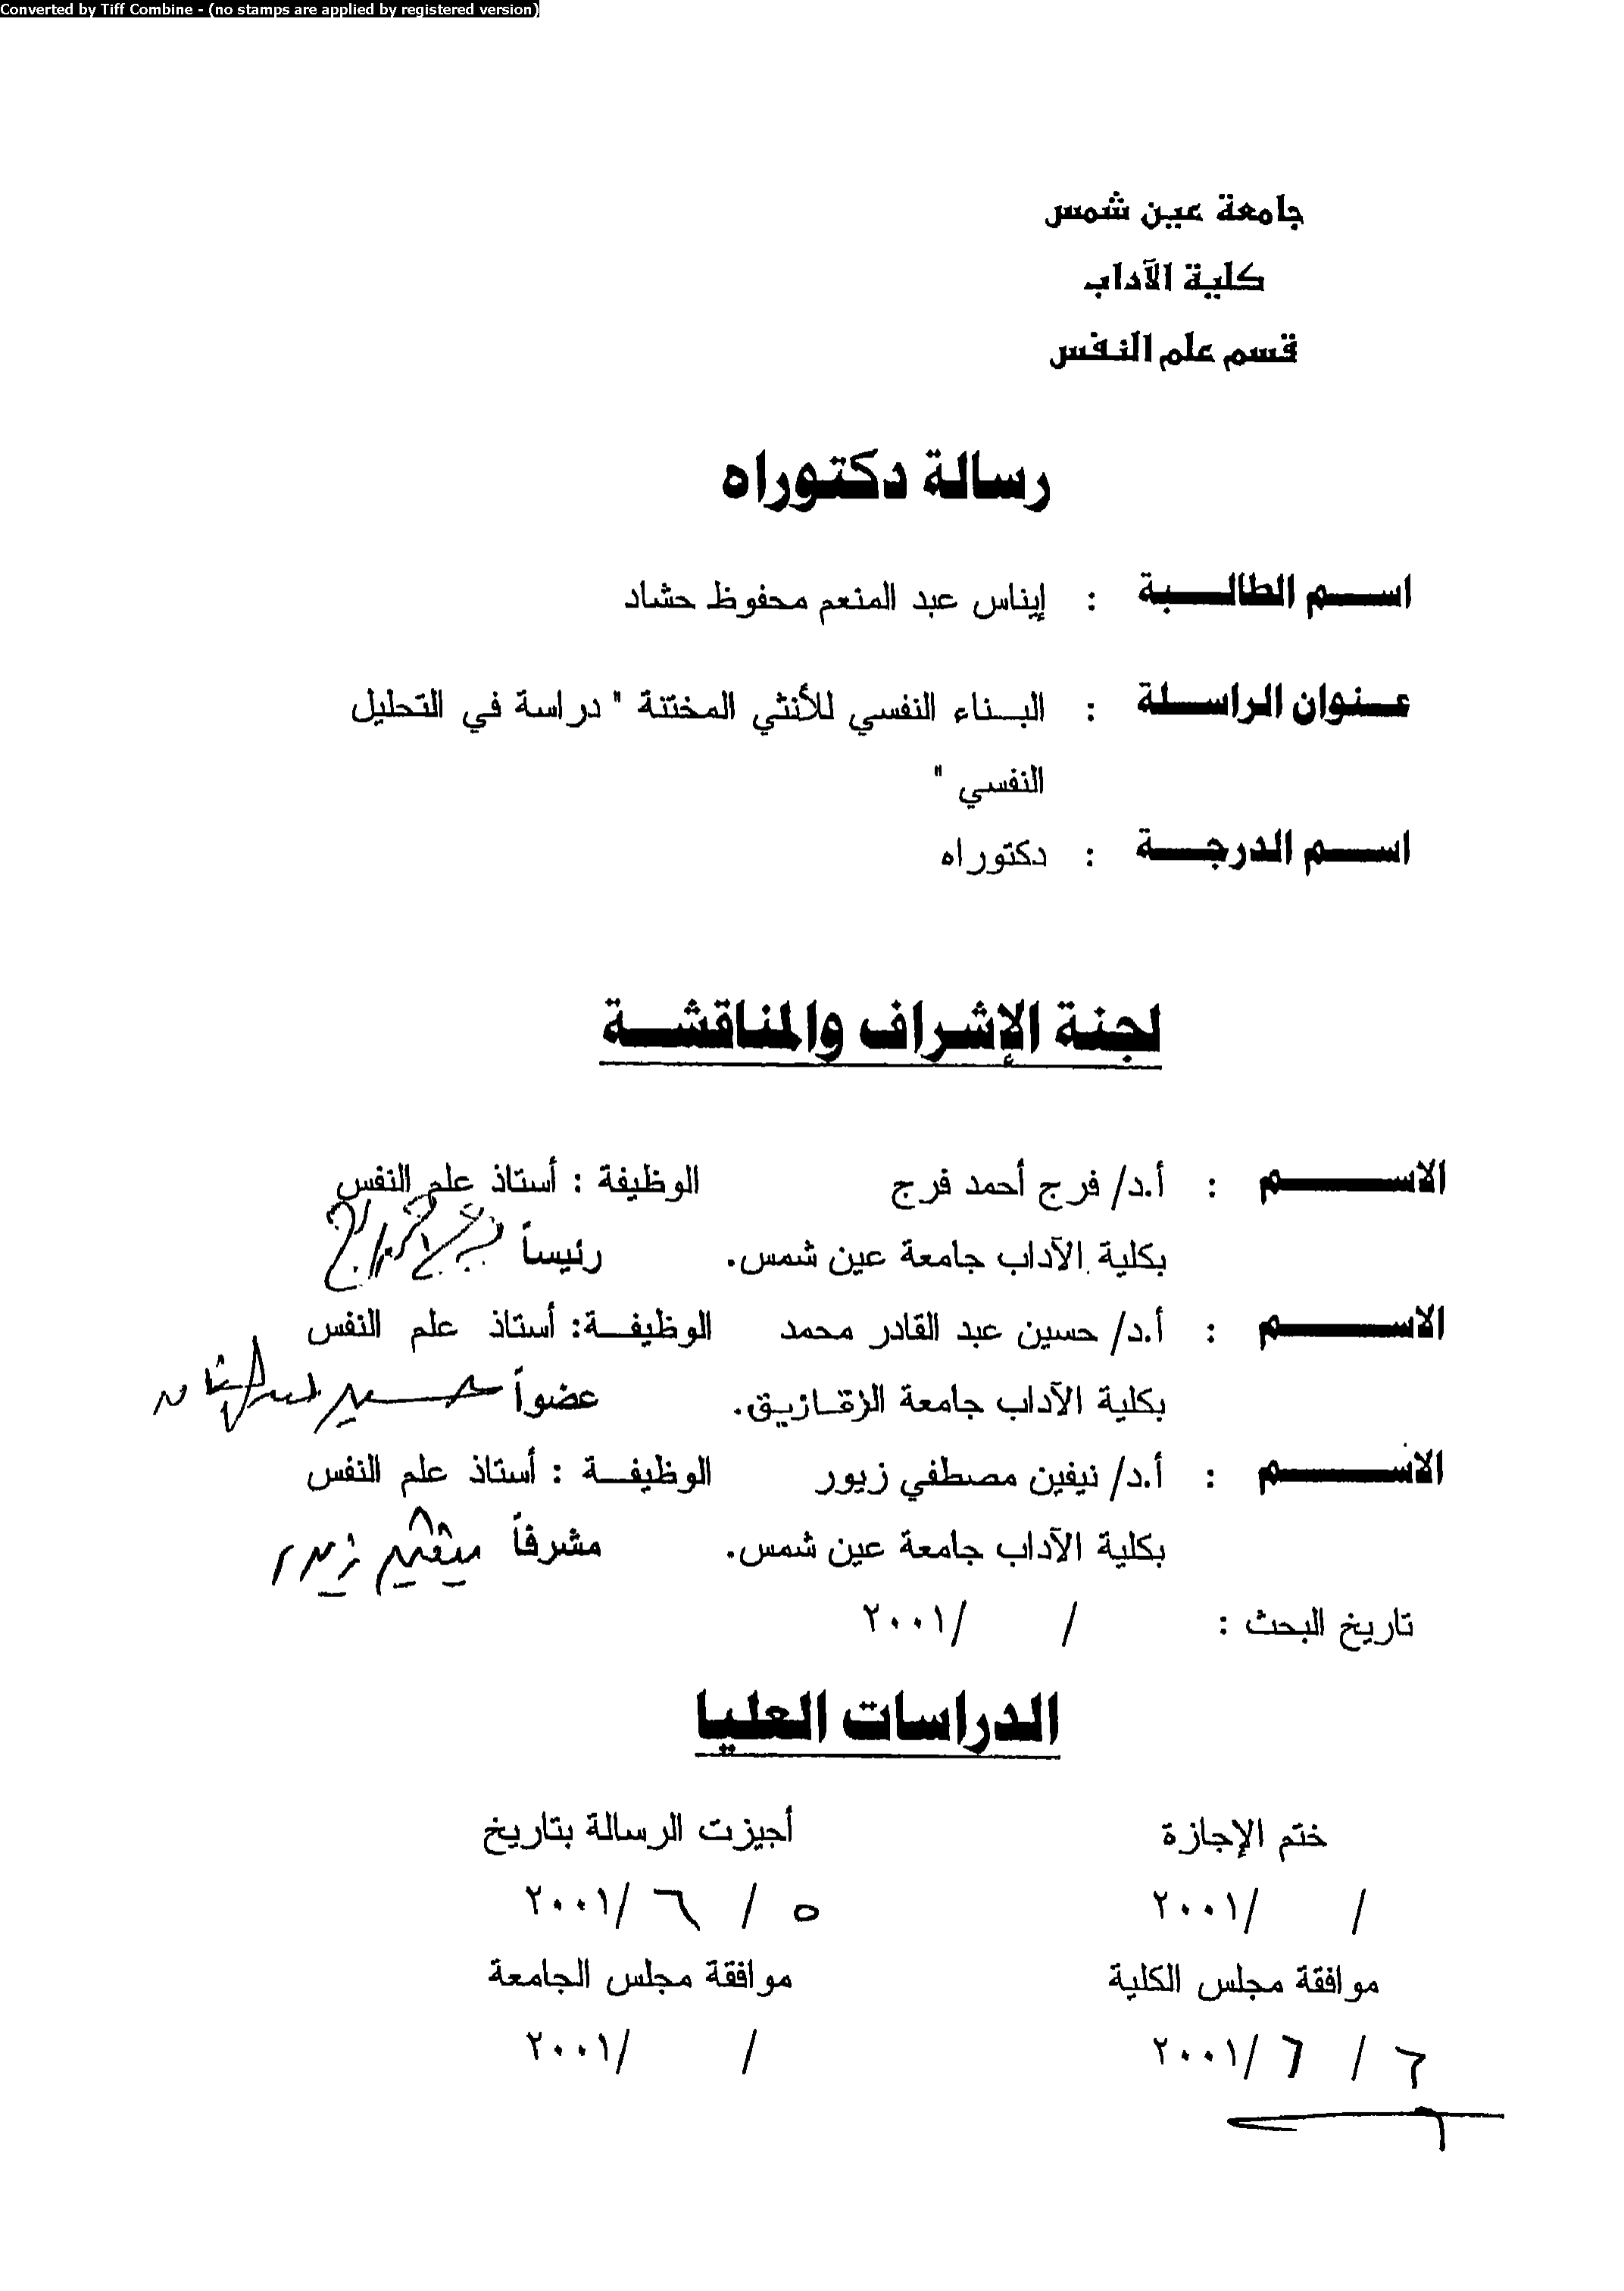 Converted by Tiff Combine - (no stamps are applied by registered version)
جامعة عين شمس
كلية الآداب
قسم علم النفس
رسالة دكتوراه
اسم الطالبة : إيناس عبد المنعم محفوظ حشاد
عنوان الراسلة : البناء النفسي للأنثي المختتنة " دراسة في التحليل
النفسي "
اسم الدرجة : دكتوراه
لجنة الإشراف والمناقشة
الاسم : أ.د/ فرج أحمد فرج الوظيفة : أستاذ علم النفس
بكلية الآداب جامعة عين شمس. رئيساً
الاسم : أ.د/ حسين عبد القادر محمد الوظيفة: أستاذ علم النفس
بكلية الآداب جامعة الزقازيق. عضواً حسين عبد القادر
الاسم : أ.د/ نيفين مصطفي زيور الوظيفة : أستاذ علم النفس
بكلية الآداب جامعة عين شمس. مشرفاً نيفين زيور
تاريخ البحث : / /٢٠٠١
الدراسات العليا
ختم الإجازة أجيزت الرسالة بتاريخ
/ /٢٠٠١ ٥ / ٦ /٢٠٠١
موافقة مجلس الكلية موافقة مجلس الجامعة
٦ / ٦ /٢٠٠١ / /٢٠٠١